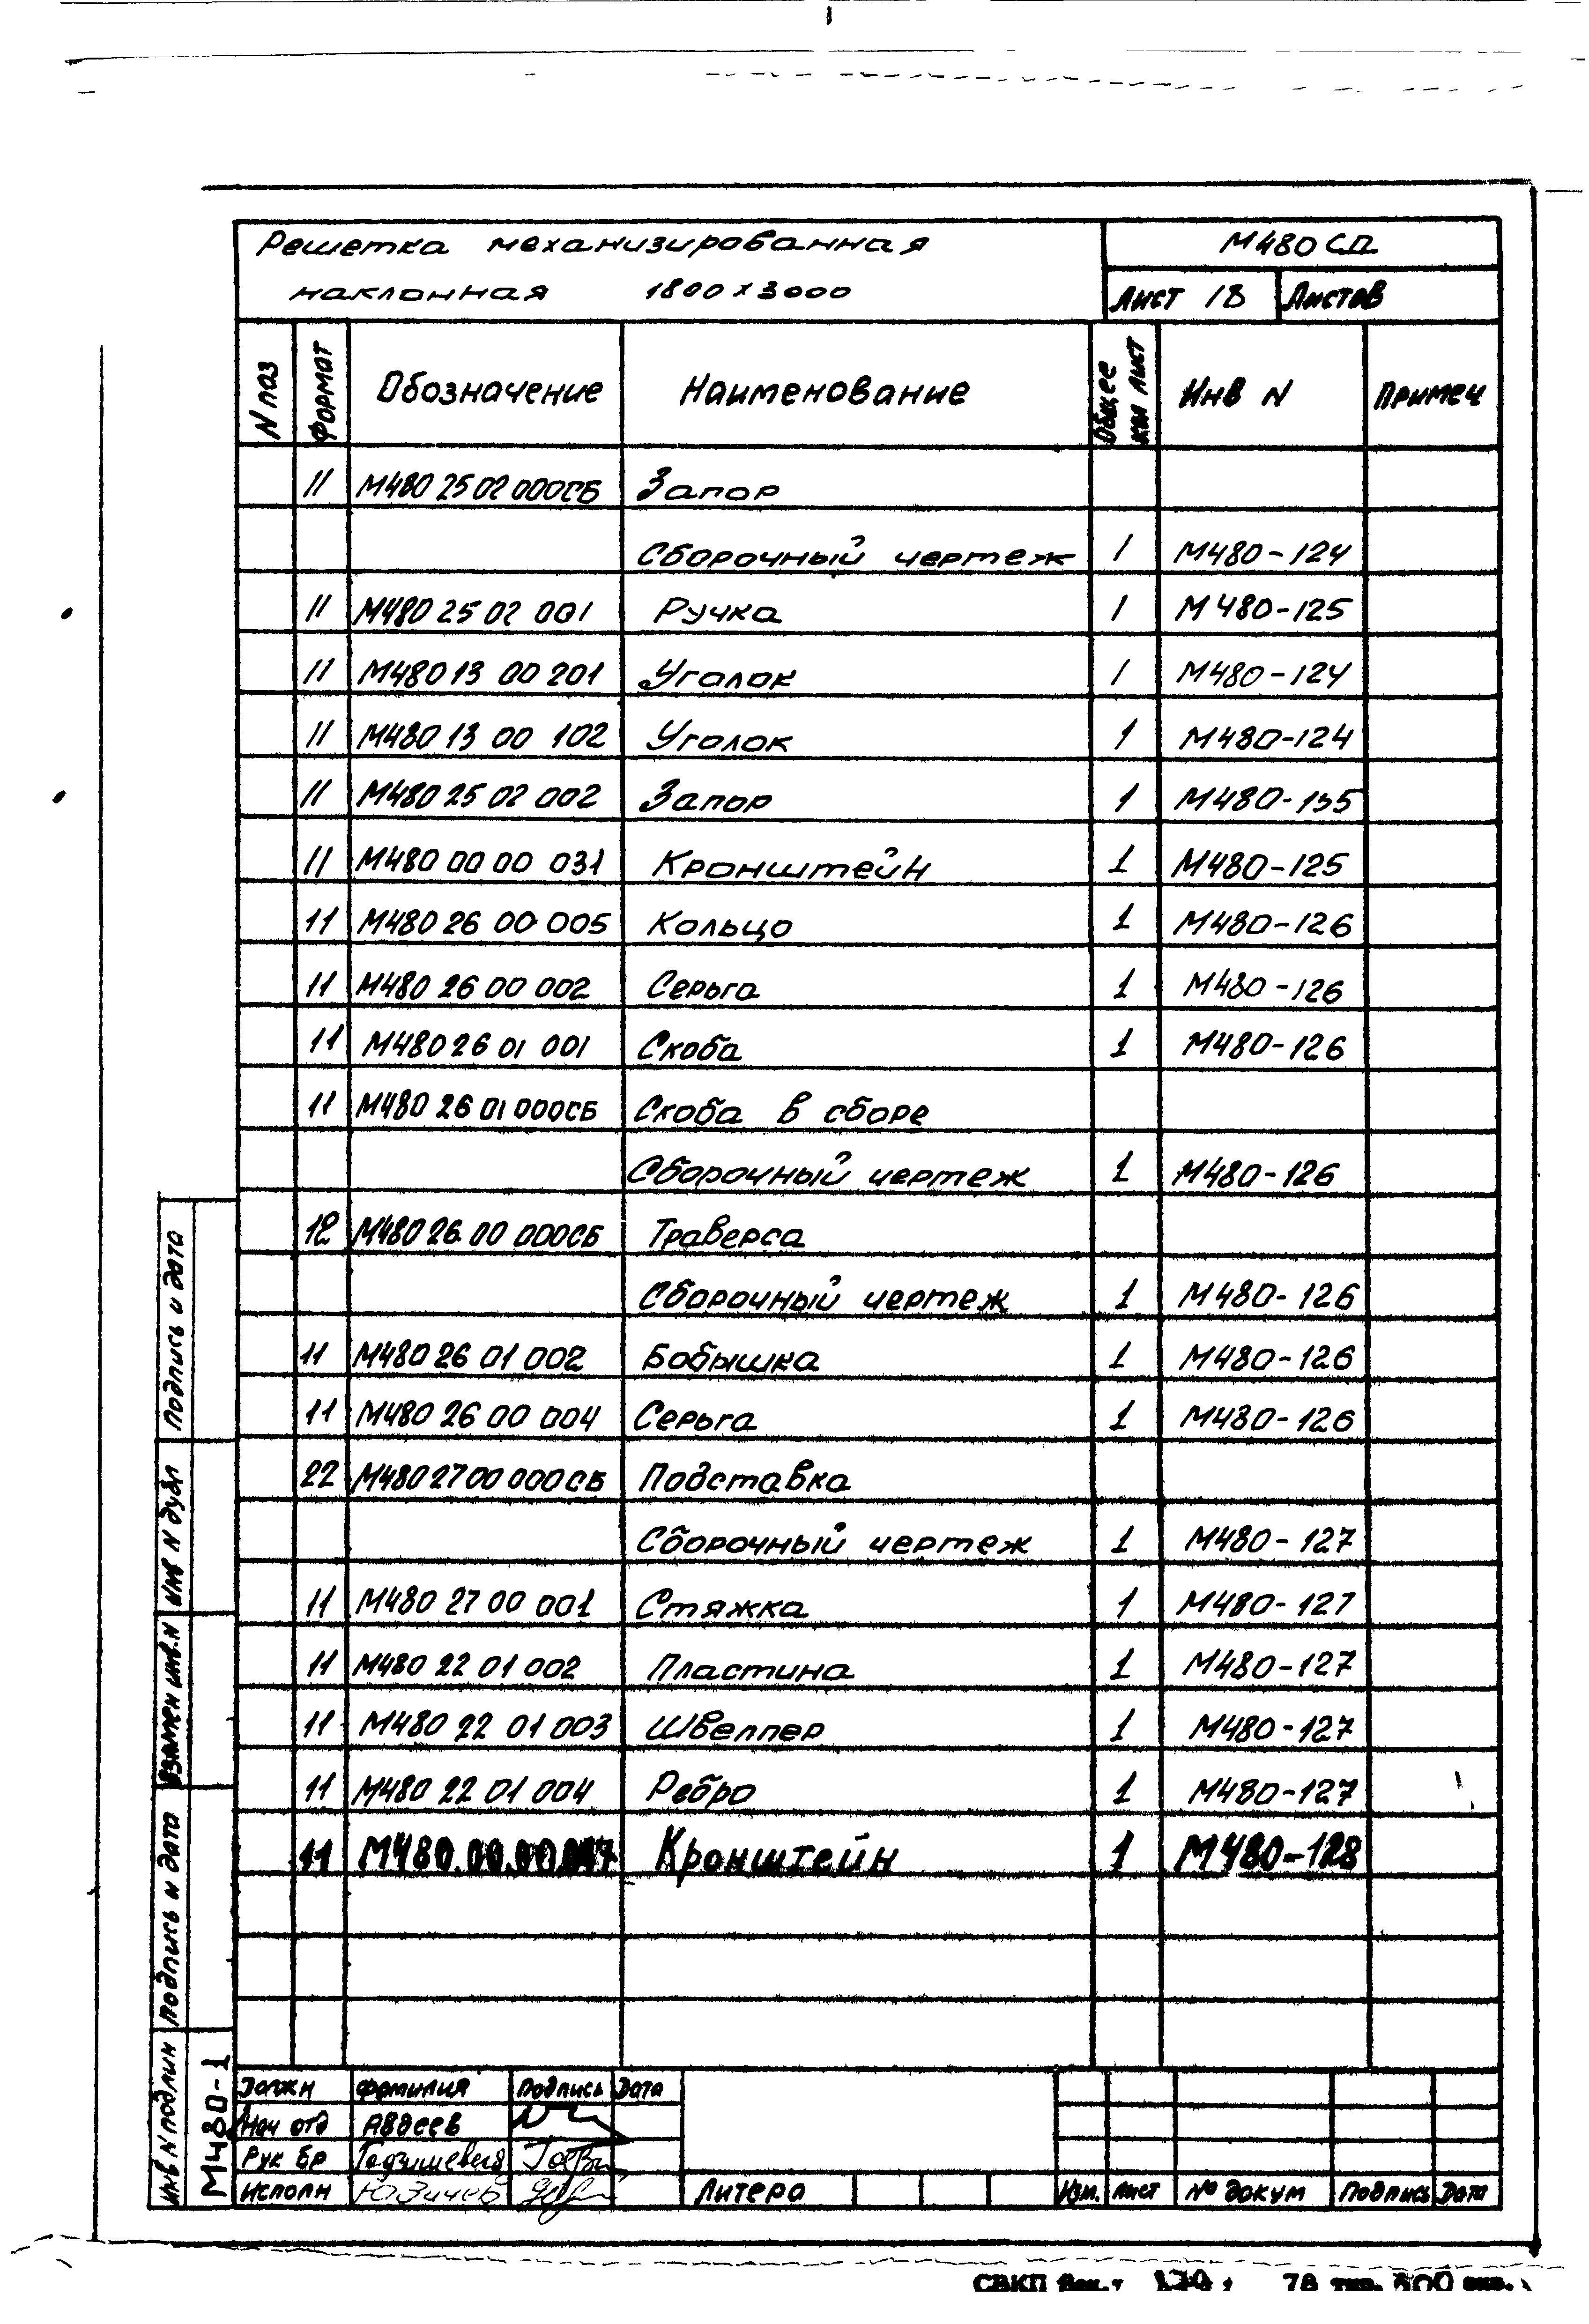 Решетка механизированная
наклонная 1800 х 3000
М480СД
Лист 18 Листов
N паз Формат Обозначение Наименование Общее кол лист Инв N Примеч
11 М480 25 02 000СБ Запор
Сборочный чертеж 1 М480-124
11 М480 25 02 001 Ручка 1 М480-125
11 М480 13 00 201 Уголок 1 М480-124
11 М480 13 00 102 Уголок 1 М480-124
11 М480 25 02 002 Запор 1
11 М480 00 00 031 Кронштейн 1 М480-125
11 М480 26 00 005 Кольцо 1 М480-126
11 М480 26 00 002 Серьга 1 М480-126
11 М480 26 01 001 Скоба 1 М480-126
11 М480 26 01 000СБ Скоба в сборе
Сборочный чертеж 1 М480-126
12 М480 26 00 000СБ Траверса
Сборочный чертеж 1 М480-126
11 М480 26 01 002 Бобышка 1 М480-126
11 М480 26 00 004 Серьга 1 М480-126
22 М480 27 00 000СБ Подставка
Сборочный чертеж 1 М480-127
11 М480 27 00 001 Стяжка 1 М480-127
11 М480 22 01 002 Пластина 1 М480-127
11 М480 22 01 003 Швеллер 1 М480-127
11 М480 22 01 004 Ребро 1 М480-127
11 Кронштейн 1 М480-128
Подпись и дата
Инв N дубл
Взамен инв.N
Подпись и дата
Инв N подлин
М480-1
Должн Фамилия Подпись Дата
Нач отд Авдеев
Рук бр
Исполн
Литера
Изм. Лист № докум Подпись Дата
СВКП Зак. 78 тир.